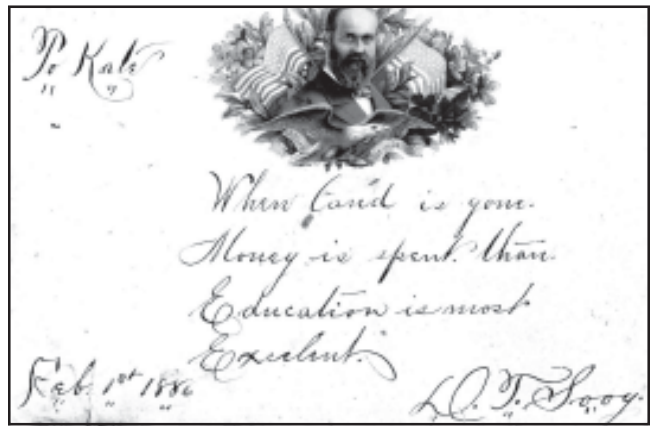 To Kate
When Land is gone.
Money is spent. than.
Education is most
Excelent."
Feb. 1st 1886
D. T. Sooy.